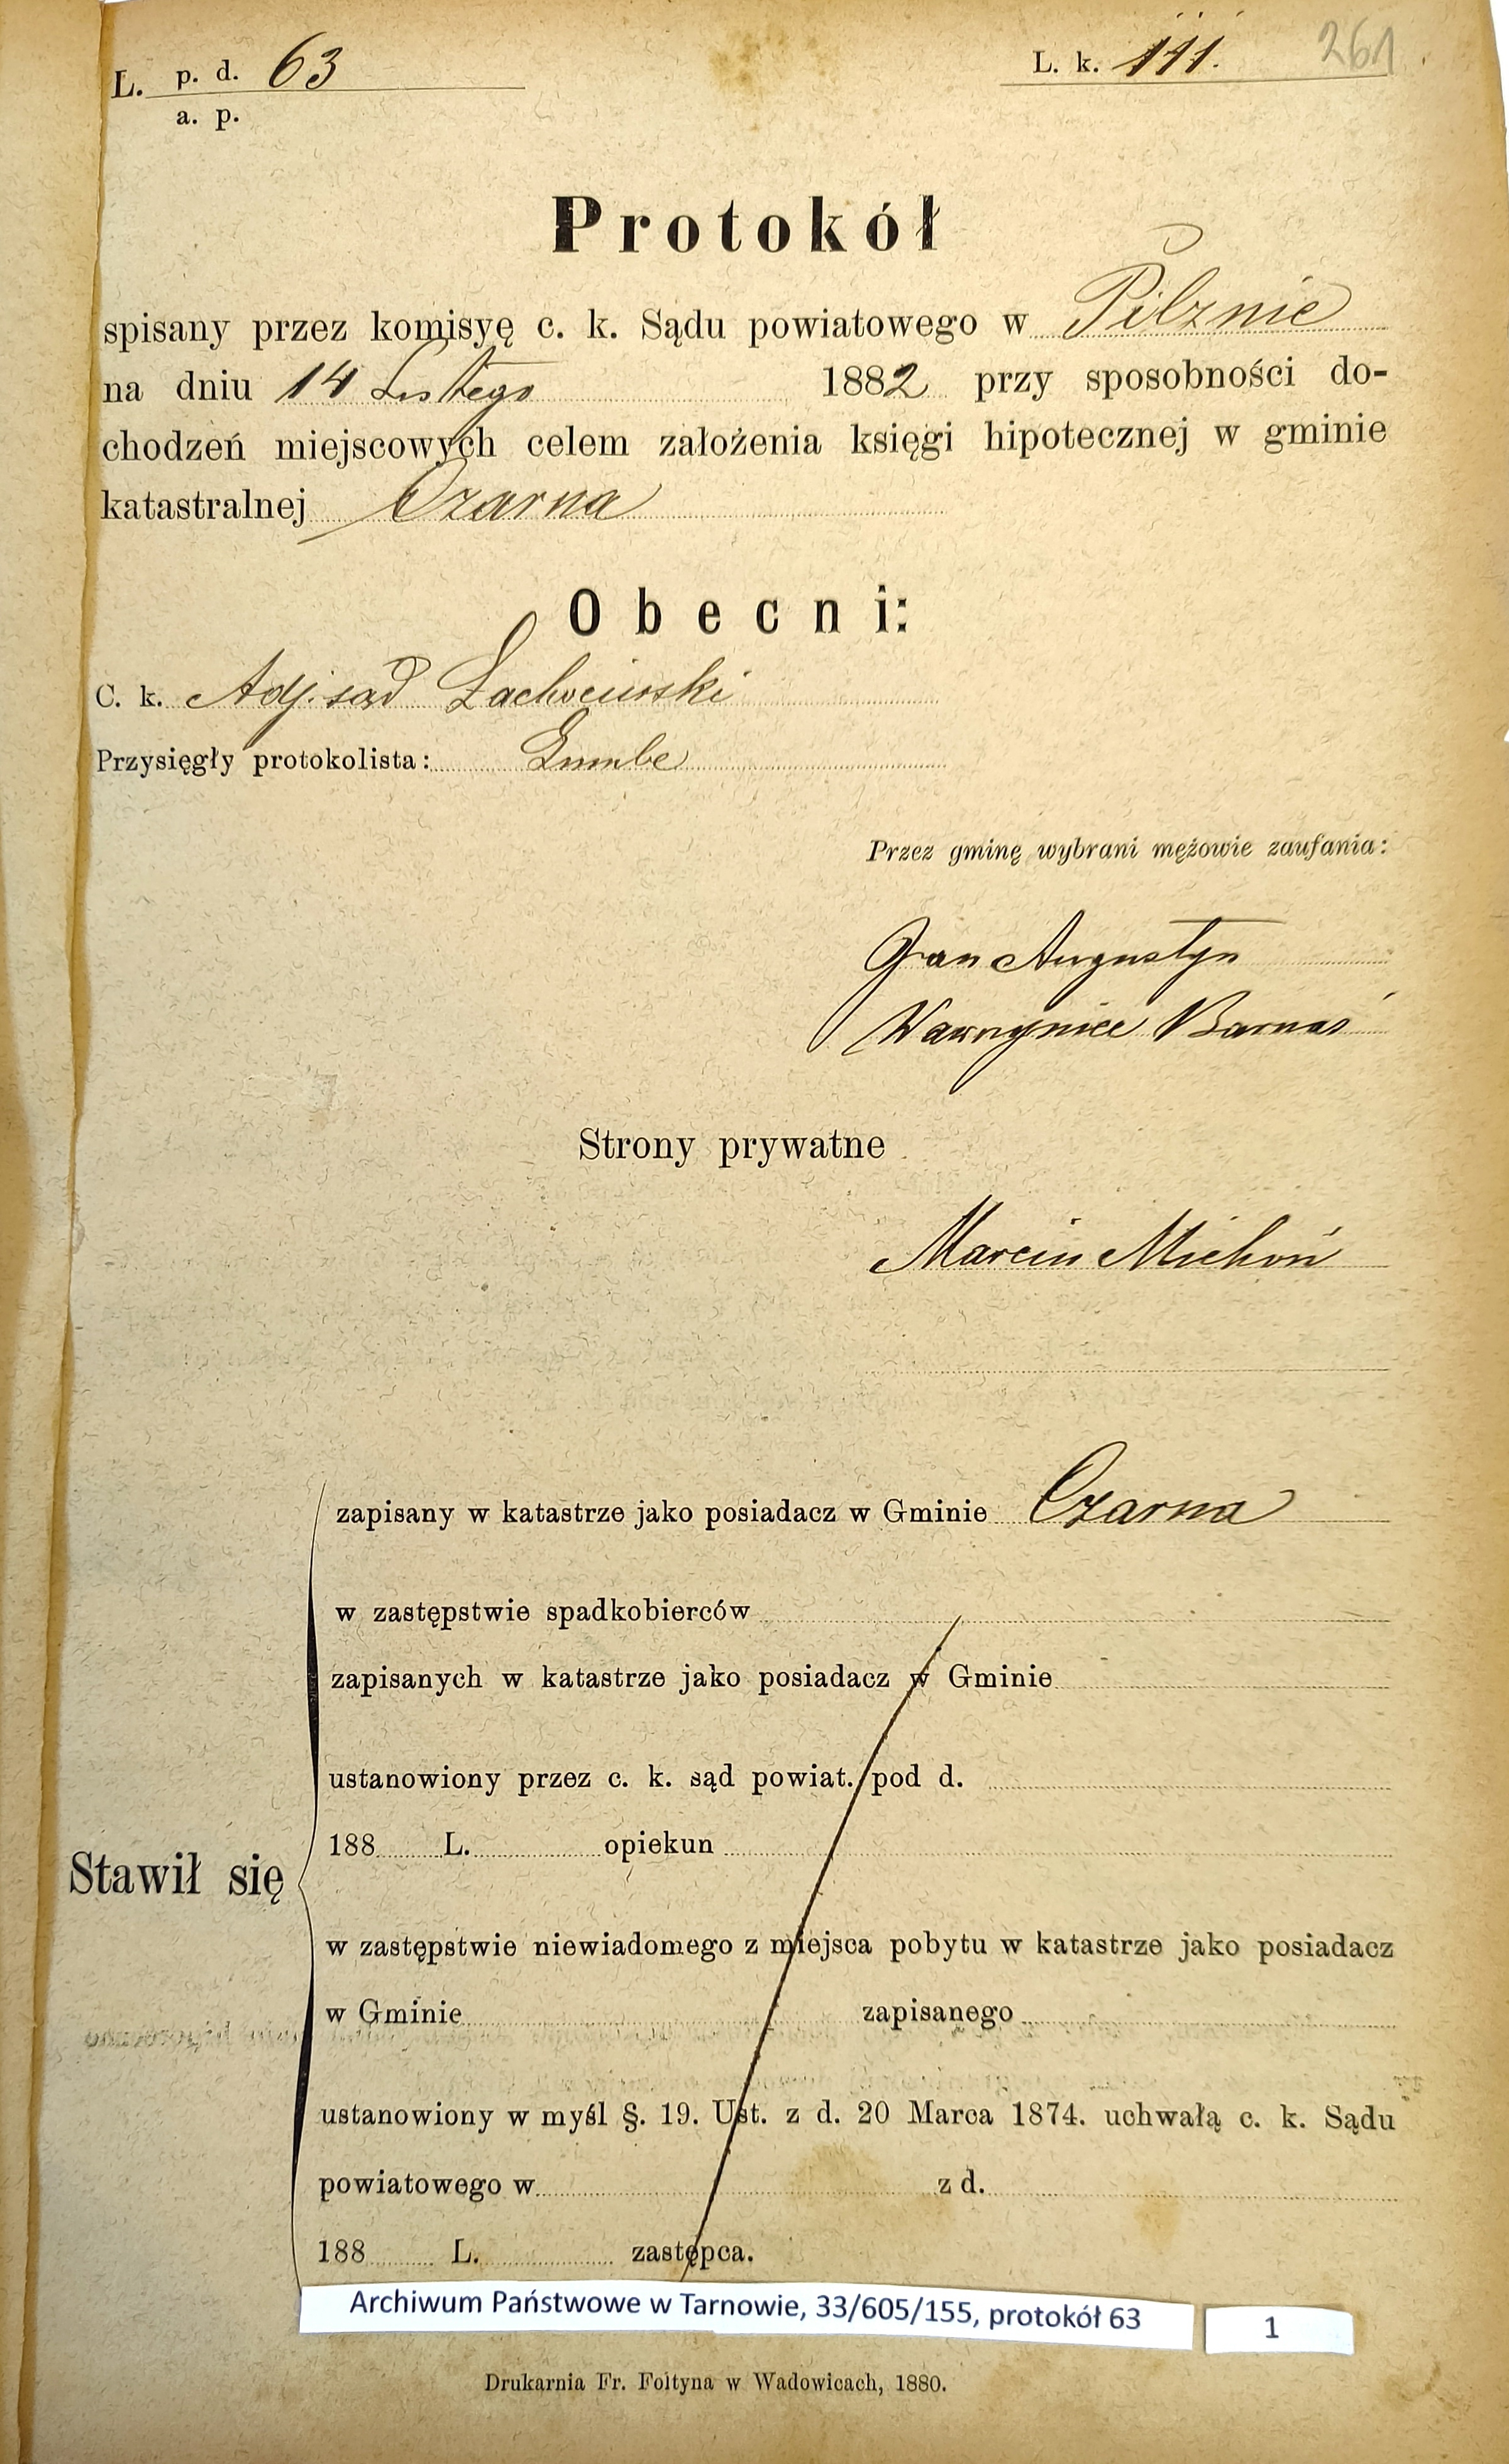 L. p. d. 63
a. p.
L. k. 111. 261
Protokół
spisany przez komisyę c. k. Sądu powiatowego w Pilznie
na dniu 14 Lutego 1882 przy sposobności do-
chodzeń miejscowych celem założenia księgi hipotecznej w gminie
katastralnej Czarna
Obecni:
C. k. Adj. sąd
Przysięgły protokolista:
Przez gminę wybrani mężowie zaufania:
Jan Augustyn
Wawrzyniec Barnaś
Strony prywatne
Marcin Michoń
zapisany w katastrze jako posiadacz w Gminie Czarna
w zastępstwie spadkobierców
zapisanych w katastrze jako posiadacz w Gminie
ustanowiony przez c. k. sąd powiat. pod d.
188 L. opiekun
Stawił się
w zastępstwie niewiadomego z miejsca pobytu w katastrze jako posiadacz
w Gminie zapisanego
ustanowiony w myśl §. 19. Ust. z d. 20 Marca 1874. uchwałą c. k. Sądu
powiatowego w z d.
188 L. zastępca.
Archiwum Państwowe w Tarnowie, 33/605/155, protokół 63 1
Drukarnia Fr. Foltyna w Wadowicach, 1880.